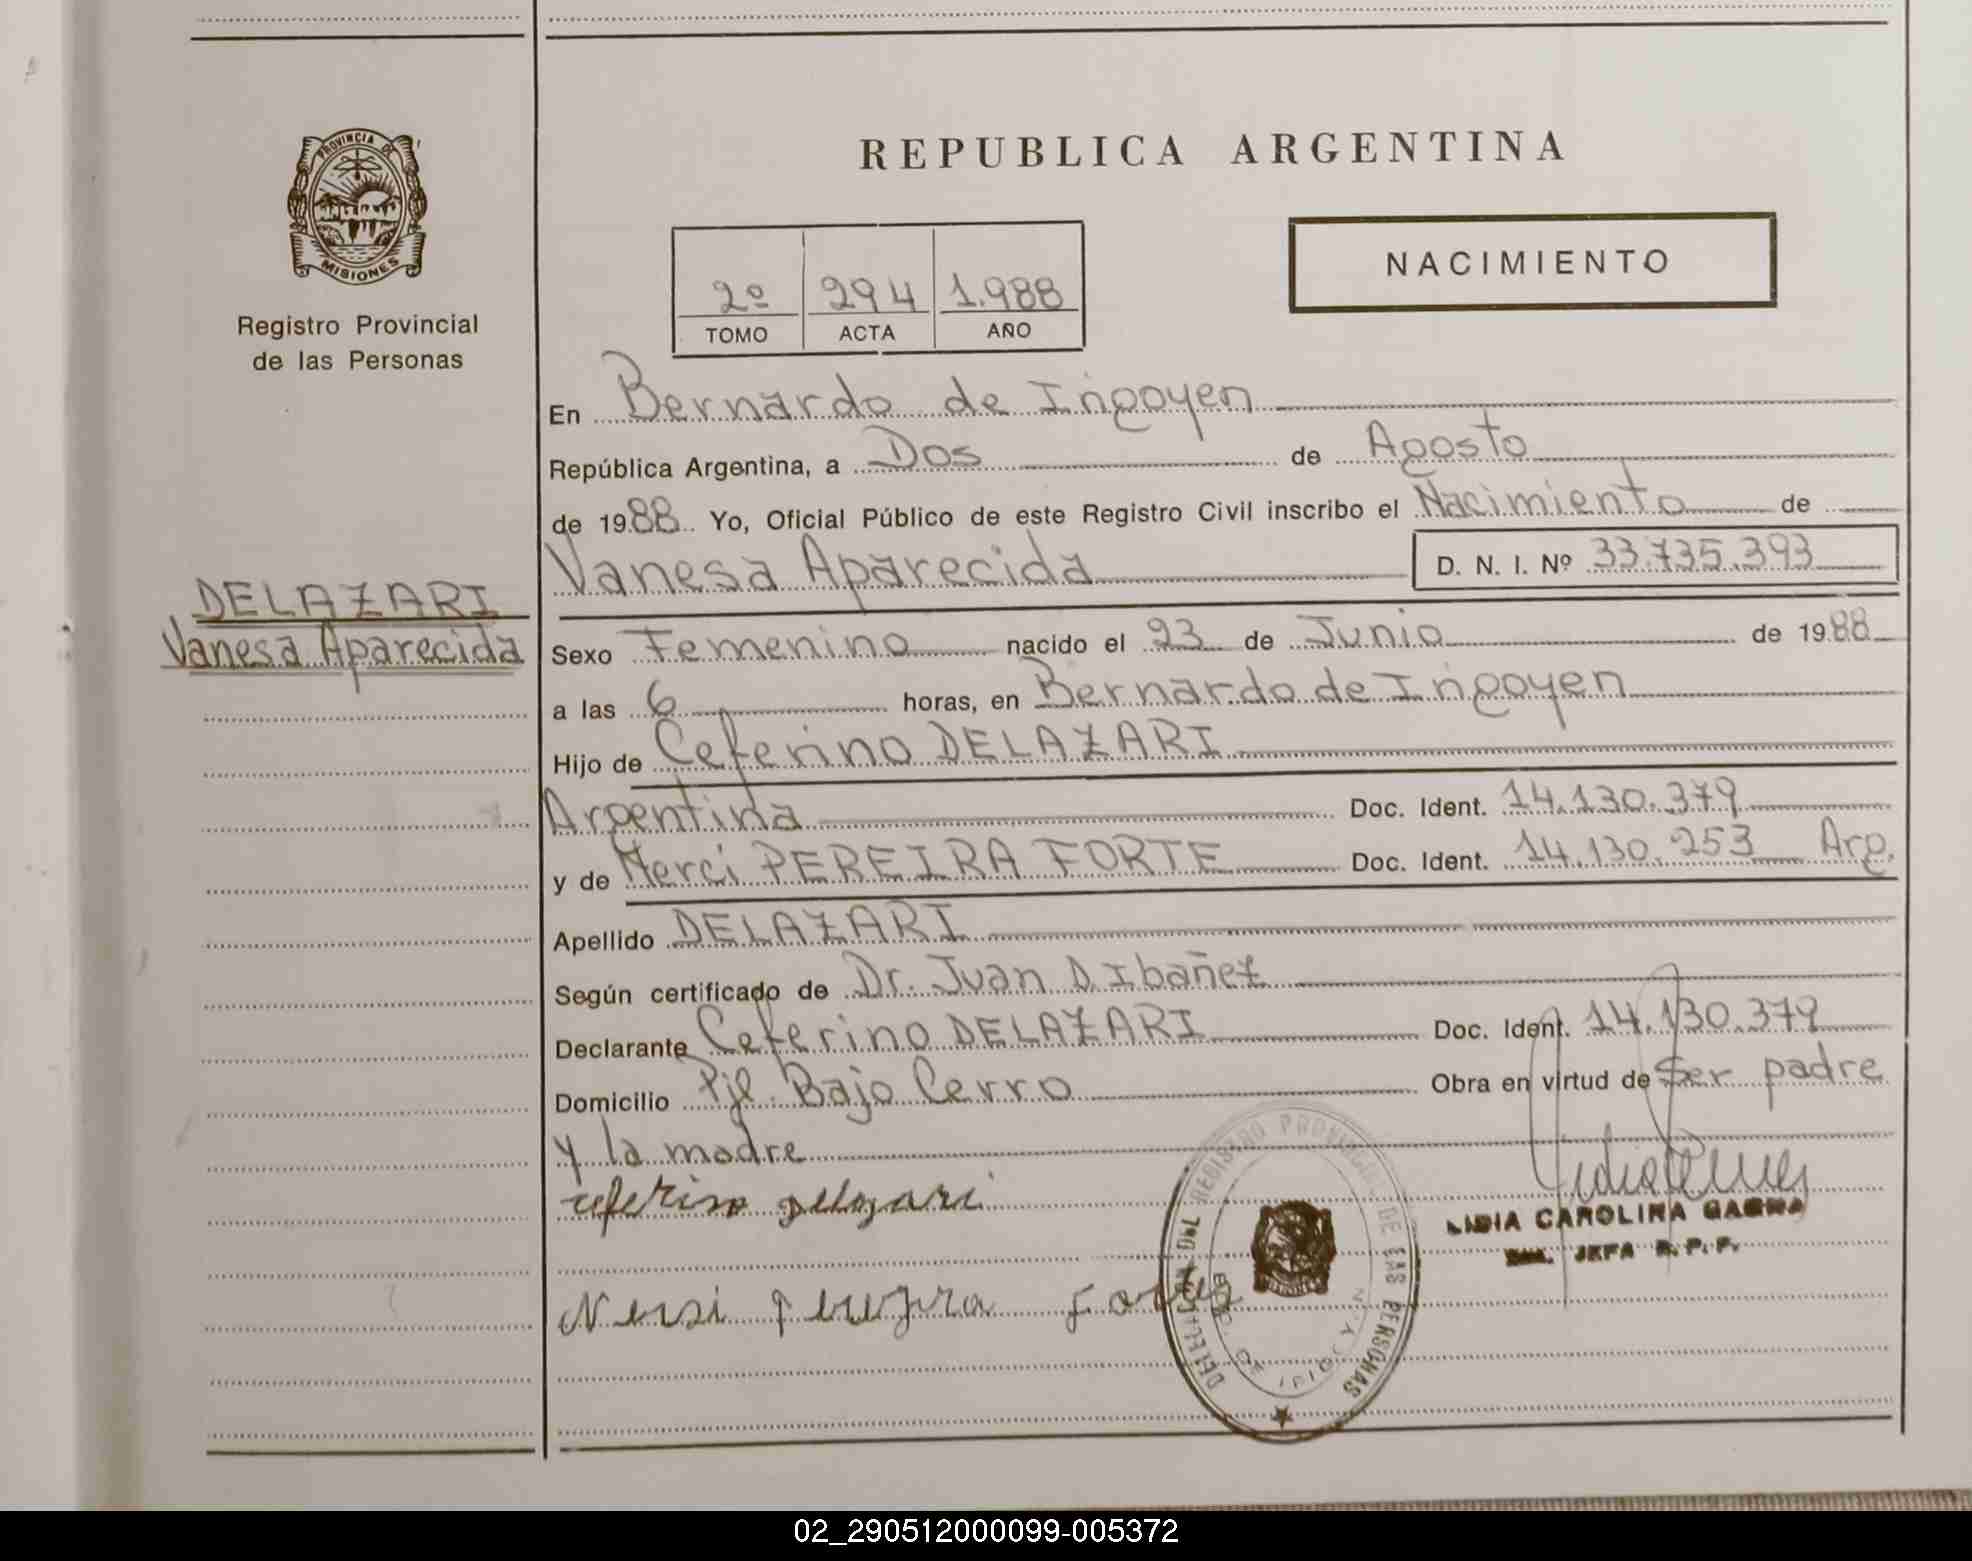 REPUBLICA ARGENTINA
PROVINCIA DE
MISIONES
Registro Provincial
de las Personas
NACIMIENTO
2º 294 1.988
TOMO ACTA AÑO
En Bernardo de Irigoyen
República Argentina, a Dos de Agosto
de 1988 Yo, Oficial Público de este Registro Civil inscribo el Nacimiento de
Vanesa Aparecida D. N. I. Nº 33.735.393
DELAZARI
Vanesa Aparecida
Sexo Femenino nacido el 23 de Junio de 1988
a las 6 horas, en Bernardo de Irigoyen
Hijo de Ceferino DELAZARI
Argentina Doc. Ident. 14.130.379
y de Merci PEREIRA FORTE Doc. Ident. 14.130.253 Arg.
Apellido DELAZARI
Según certificado de Dr. Juan D. Ibañez
Declarante Ceferino DELAZARI Doc. Ident. 14.130.379
Domicilio Pje. Bajo Cerro Obra en virtud de Ser padre
y la madre
ceferino delazari
LIDIA CAROLINA
JEFA R. P. P.
Nersi
DELEGACION DEL REGISTRO PROVINCIAL DE LAS PERSONAS
BDO. DE IRIGOYEN
02_290512000099-005372